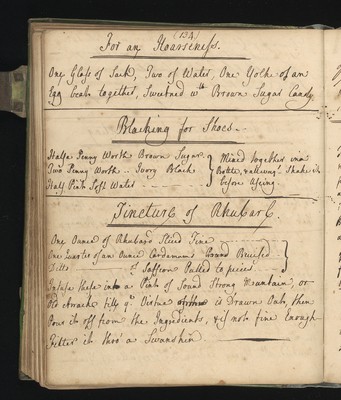 (134)
For an Hoarseness.
One Glass of Sack, Two of Water, One Yolk of an
Egg beat together, Sweetned wth. Brown Sugar Candy
Blacking for Shoes.
Halfe Penny Worth Brown Sugar
Two Penny Worth Ivory Black
Half Pint Soft Water
Mixed together in a
Bottle, & allways Shake it
before Using.
Tincture of Rhubarb.
One Ounce of Rhubarb Sliced Fine
One Quarter of an Ounce Cardamums Bruised
Ditto of Saffron Pulled to pieces
Infuse these into a Pint of Sound Strong Mountain, or
Old Arrack till ye. Virtue is Drawn Out, then
Pour it off from the Ingredients, & if not fine Enough
Filter it thro' a Swanskin